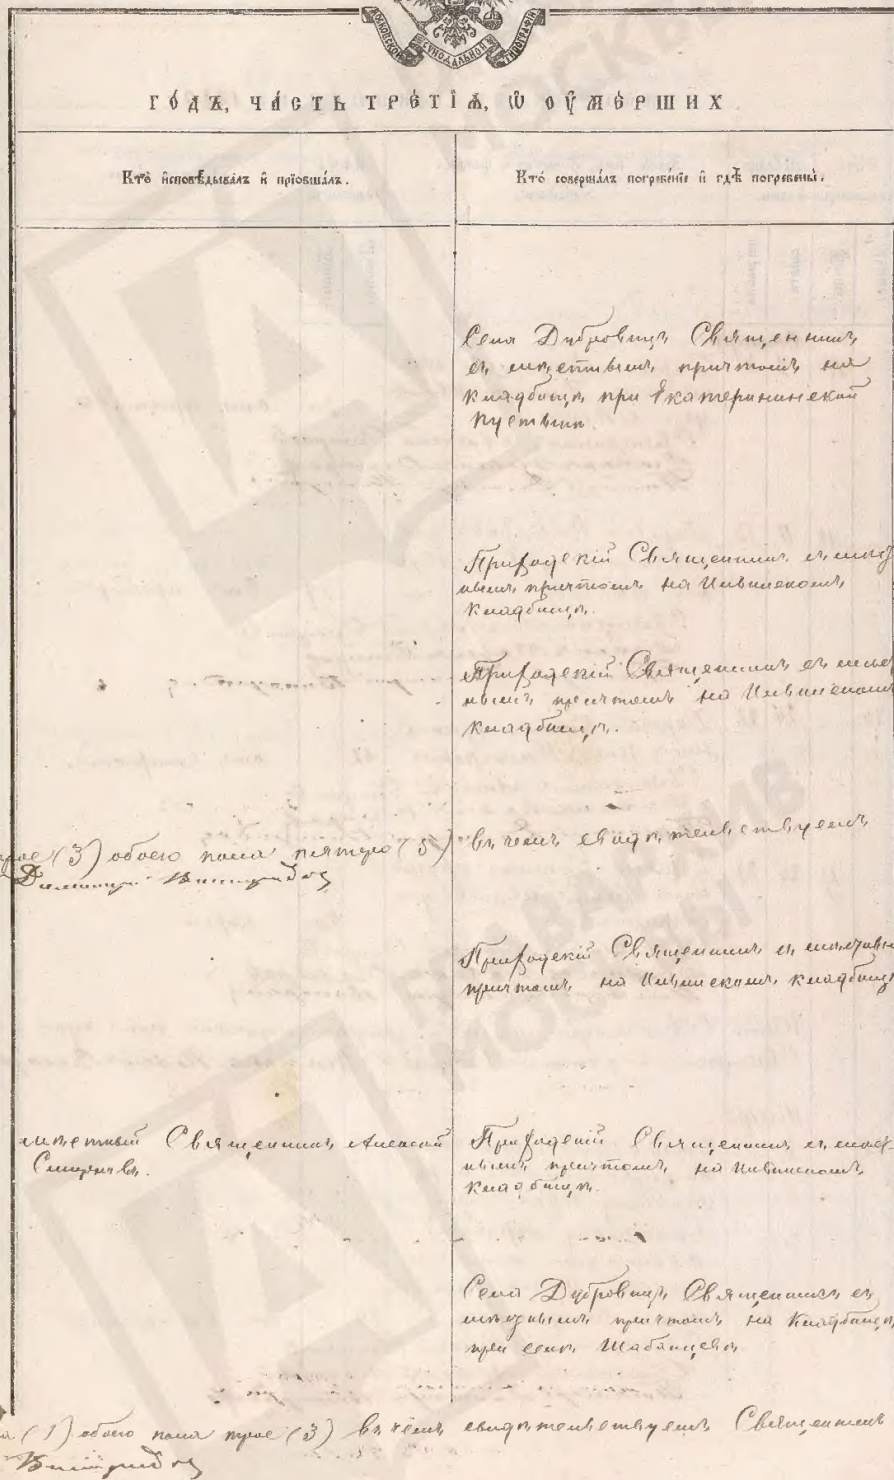 МОСКОВСКОЙ СѴНОДАЛЬНОЙ ТИПОГРАФІИ
ГО́ДЪ, ЧА́СТЬ ТРЕ́ТІѦ, Ѡ ОУ҆МЕ́РШИХ
Кто̀ и҆сповѣ́дывалъ и҆ прїобща́лъ.
Кто̀ соверша́лъ погребе́нїе и҆ гдѣ̀ погребены̀.
Села Дубровицъ Священникъ
съ мѣстнымъ причтомъ на
кладбищѣ при Екатерининской
пустыни.
Приходскій Священникъ съ мѣст
нымъ причтомъ на Ивинскомъ
кладбищѣ.
Приходскій Священникъ съ мѣст
нымъ причтомъ на Ивинскомъ
кладбищѣ.
трое (3) обоего пола пятеро (5) въ чемъ свидѣтельствуемъ
Приходскій Священникъ съ мѣстнымъ
причтомъ на Ивинскомъ кладбищѣ
мѣстный Священникъ Алексѣй
Смирновъ.
Приходскій Священникъ съ мѣст-
нымъ причтомъ на Ивинскомъ
кладбищѣ.
Села Дубровицъ Священникъ съ
мѣстнымъ причтомъ на Кладбищѣ
при селѣ Шабанцевѣ
(1) обоего пола трое (3) въ чемъ свидѣтельствуемъ Священникъ